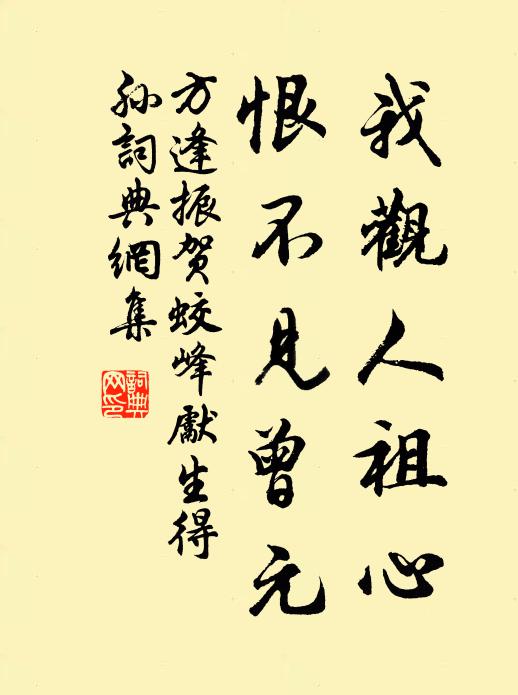 我觀人祖心
恨不見曾元
方逢振贺蛟峰獻生得
孙詞典網集
詞典
网印